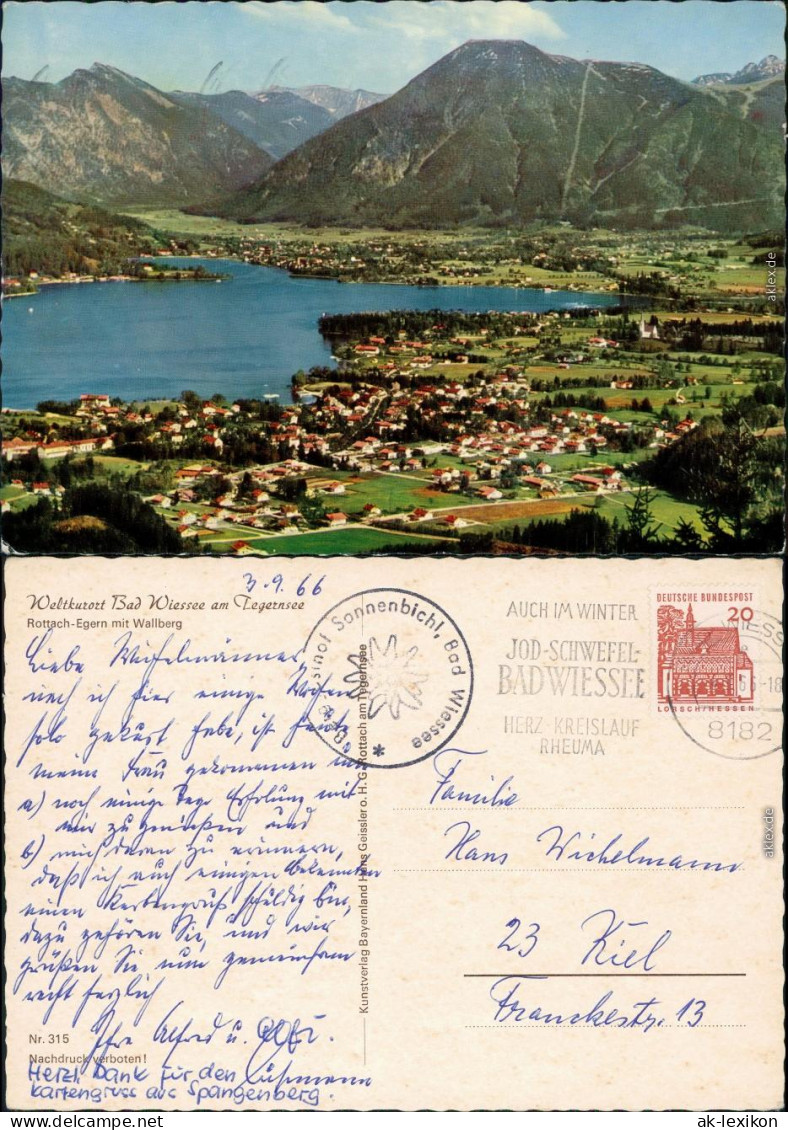 aklex.de
3.9.66
Weltkurort Bad Wiessee am Tegernsee
Rottach-Egern mit Wallberg
Liebe Wichelmänner,
nach ich hier einige Wochen
solo gekurt habe, ist heute
meine Frau gekommen um
a) noch einige Tage Erholung mit
mir zu genießen und
b) mich daran zu erinnern,
daß ich auch einigen Bekannten
einen Kartengruß schuldig bin,
dazu gehören Sie, und wir
grüßen Sie nun gemeinsam
recht herzlich
Ihre Alfred u.
Nr. 315
Nachdruck verboten!
Herzl. Dank für den
Kartengruss aus Spangenberg.
Sonnenbichl, Bad Wiessee
Kunstverlag Bayernland Hans Geissler o. H. G. Rottach am Tegernsee
AUCH IM WINTER
JOD-SCHWEFEL-
BAD WIESSEE
HERZ-KREISLAUF
RHEUMA
DEUTSCHE BUNDESPOST
20
LORSCH/HESSEN
8182
Familie
Hans Wichelmann
23 Kiel
Franckestr. 13
aklex.de
ak-lexikon.de